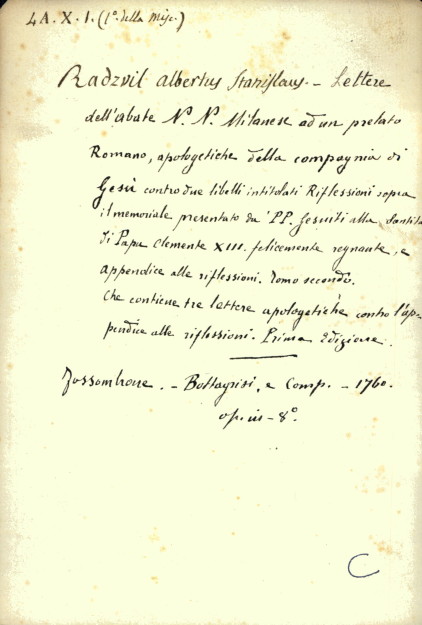 4A.X.1. (1º della Misc.)
Radzvil Albertus Stanislaus. - Lettere
dell'abate N. N. Milanese ad un prelato
Romano, apologetiche della compagnia di
Gesù contro due libelli intitolati Riflessioni sopra
il memoriale presentato da' PP. Gesuiti alla Santità
di Papa Clemente XIII. felicemente regnante, e
appendice alle riflessioni. Tomo secondo.
Che contiene tre lettere apologetiche contro l'ap-
pendice alle riflessioni. Prima Edizione.
Fossombrone. - Bottagrisi, e Comp. - 1760.
op. in - 8º.
C